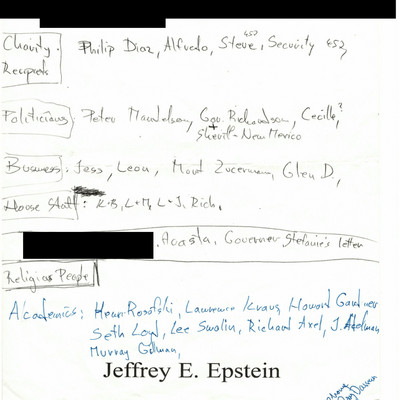 Charity Recipients
Philip Diaz, Alfredo, Steve 450, Security 452,
Politicians: Peter Mandelson, Gov. Richardson, Cecille?
+ Sheriff - New Mexico
Business: Jess, Leon, Mort Zucerman, Glen D.,
House Staff: K+B, L+M, L+J, Rich,
Acasta, Governer, Stefanie's letter
Religious People
Academics: Henri Rosofski, Lawrence Kraus, Howard Gardner
Seth Loyd, Lee Smolin, Richard Axel, J. Adelman
Murray Gellman,
Jeffrey E. Epstein